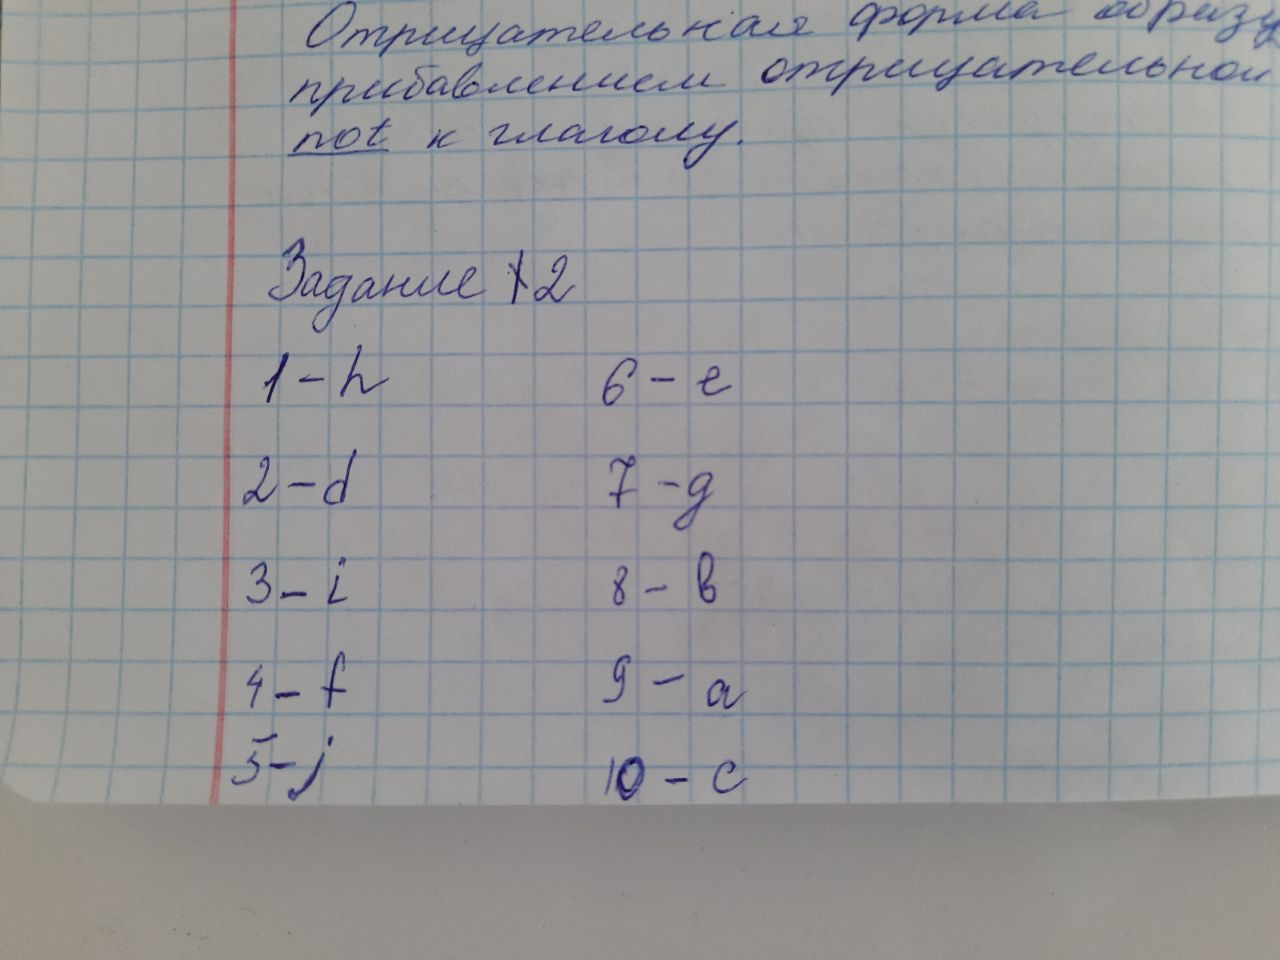 Отрицательная форма образу
прибавлением отрицательной
not к глаголу.
Задание 2
1 - h
6 - e
2 - d
7 - g
3 - i
8 - в
4 - f
9 - a
5 - j
10 - c